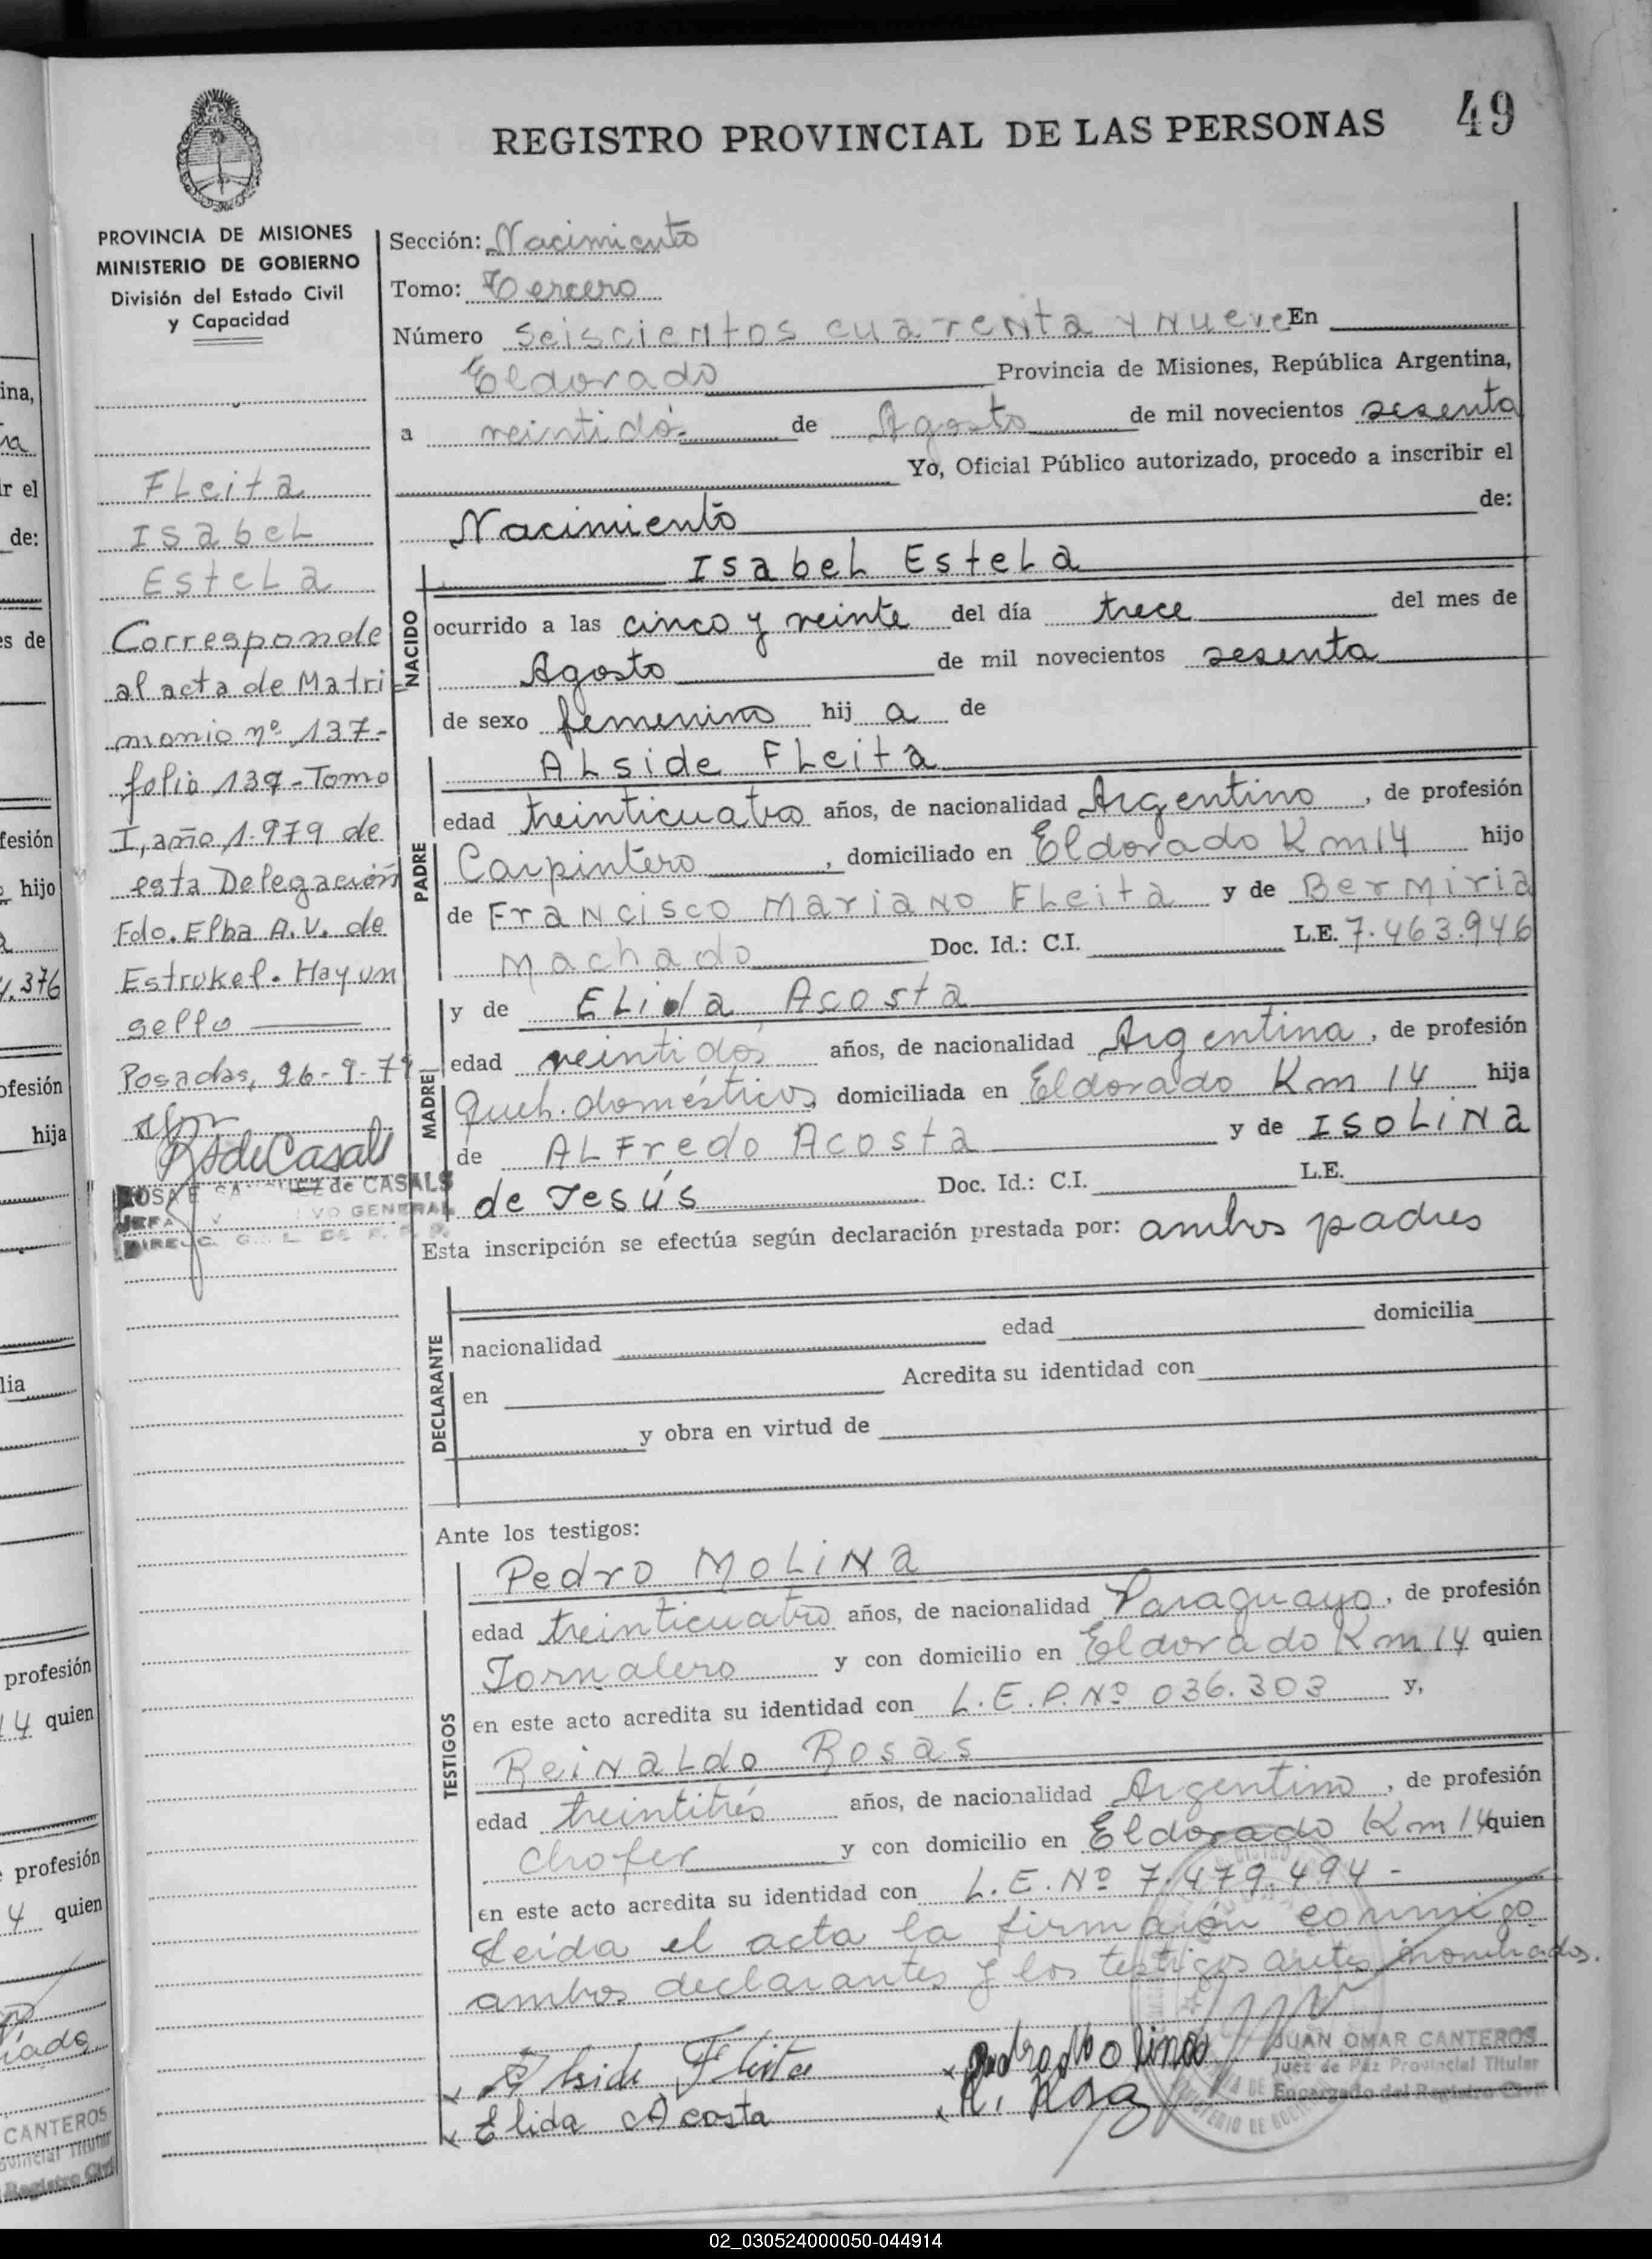 REGISTRO PROVINCIAL DE LAS PERSONAS 49
PROVINCIA DE MISIONES
MINISTERIO DE GOBIERNO
División del Estado Civil
y Capacidad
FLeita
ISabeL
EsteLa
Corresponde
al acta de Matri
monio nº 137-
folio 137-Tomo
I, año 1.979 de
esta Delegación
Fdo. Elba A.V. de
Estrukel. Hay un
sello
Posadas, 26-9-79
RSdeCasals
de CASALS
Sección: Nacimiento
Tomo: Tercero
Número seiscientos cuarenta y nueve En
Eldorado Provincia de Misiones, República Argentina,
a veintidós de Agosto de mil novecientos sesenta
Yo, Oficial Público autorizado, procedo a inscribir el
Nacimiento de:
ISabeL EsteLa
NACIDO
ocurrido a las cinco y veinte del día trece del mes de
Agosto de mil novecientos sesenta
de sexo femenino hij a de
ALside FLeita
PADRE
edad treinticuatro años, de nacionalidad Argentino, de profesión
Carpintero, domiciliado en Eldorado Km 14 hijo
de Francisco Mariano FLeita y de Bermiria
Machado Doc. Id.: C.I. L.E. 7.463.946
y de ELida Acosta
MADRE
edad veintidós años, de nacionalidad Argentina, de profesión
Queh. domésticos, domiciliada en Eldorado Km 14 hija
de ALFredo Acosta y de ISOLiNa
de Jesús Doc. Id.: C.I. L.E.
Esta inscripción se efectúa según declaración prestada por: ambos padres
DECLARANTE
nacionalidad edad domicilia
en Acredita su identidad con
y obra en virtud de
Ante los testigos:
Pedro MoLiNa
TESTIGOS
edad treinticuatro años, de nacionalidad Paraguayo, de profesión
Jornalero y con domicilio en Eldorado Km 14 quien
en este acto acredita su identidad con L.E.P.Nº 036.303 y,
ReiNaLdo Rosas
edad treintitrés años, de nacionalidad Argentino, de profesión
Chofer y con domicilio en Eldorado Km 14 quien
en este acto acredita su identidad con L.E.Nº 7.479.494-
Leída el acta la firman conmigo
ambos declarantes y los testigos antes nombrados.
Alside Fleita Pedro Molina
Elida Acosta R. Rosa
JUAN OMAR CANTEROS
Juez de Paz Provincial Titular
Encargado del Registro Civil
02_030524000050-044914